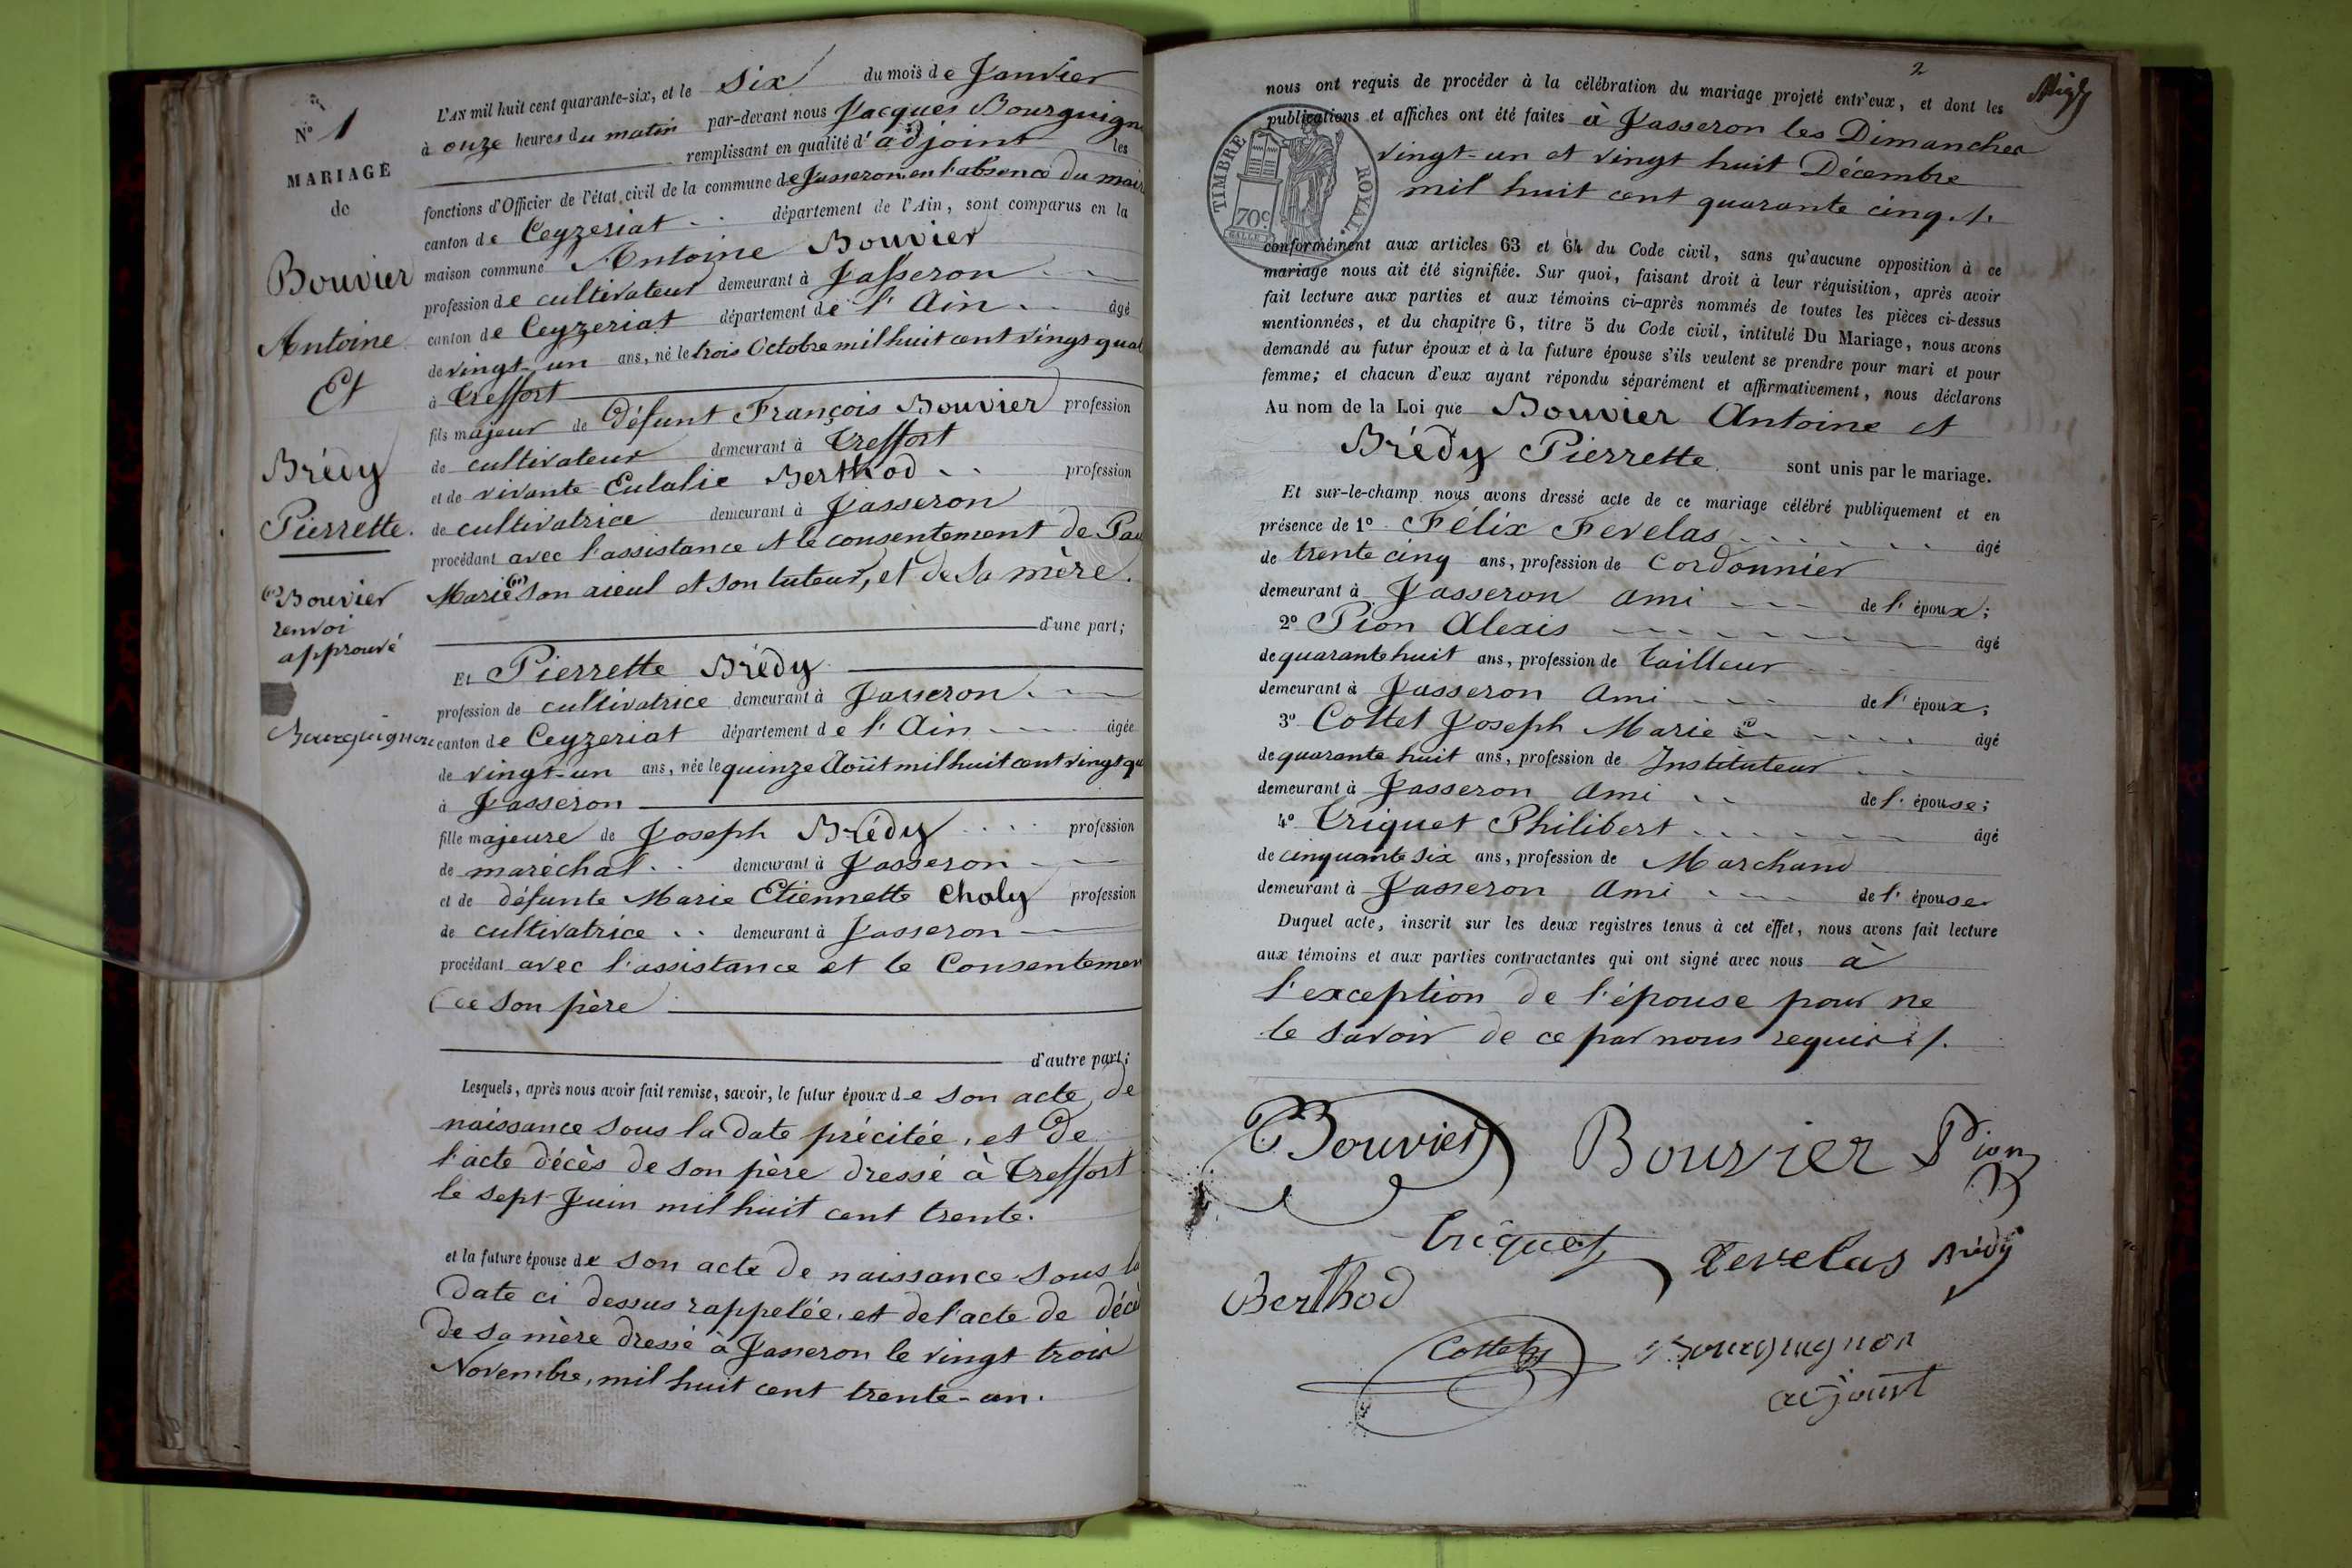 N° 1
MARIAGE
de
Bouvier
Antoine
Et
Brédy
Pierrette.
(1) Bouvier
renvoi
approuvé
Bourguignon
L'AN mil huit cent quarante-six, et le six du mois de Janvier
à onze heures du matin par-devant nous Jacques Bourguign
remplissant en qualité d'adjoint les
fonctions d'Officier de l'état civil de la commune de Jasseron en l'absence du mair
canton de Ceyzeriat département de l'Ain, sont comparus en la
maison commune Antoine Bouvier
profession de cultivateur demeurant à Jasseron
canton de Ceyzeriat département de l'Ain âgé
de vingt-un ans, né le trois Octobre mil huit cent vingt quat
à Treffort
fils majeur de Défunt François Bouvier profession
de cultivateur demeurant à Treffort
et de vivante Eulalie Berthod profession
de cultivatrice demeurant à Jasseron
procédant avec l'assistance et le consentement de Pau
Marie (1) son aieul et son tuteur, et de sa mère.
d'une part;
Et Pierrette Brédy
profession de cultivatrice demeurant à Jasseron
canton de Ceyzeriat département de l'Ain âgée
de vingt-un ans, née le quinze Août mil huit cent vingt qu
à Jasseron
fille majeure de Joseph Brédy profession
de maréchal demeurant à Jasseron
et de défunte Marie Etiennette Choly profession
de cultivatrice demeurant à Jasseron
procédant avec l'assistance et le Consentemen
de son père
d'autre part;
Lesquels, après nous avoir fait remise, savoir, le futur époux de son acte de
naissance sous la date précitée, et de
l'acte décès de son père dressé à Treffort
le sept Juin mil huit cent trente.
et la future épouse de son acte de naissance sous la
date ci dessus rappelée, et de l'acte de décè
de sa mère dressé à Jasseron le vingt trois
Novembre, mil huit cent trente-un.
2
nous ont requis de procéder à la célébration du mariage projeté entr'eux, et dont les
publications et affiches ont été faites à Jasseron les Dimanches
vingt-un et vingt huit Décembre
mil huit cent quarante cinq ./.
TIMBRE ROYAL.
70c
conformément aux articles 63 et 64 du Code civil, sans qu'aucune opposition à ce
mariage nous ait été signifiée. Sur quoi, faisant droit à leur réquisition, après avoir
fait lecture aux parties et aux témoins ci-après nommés de toutes les pièces ci-dessus
mentionnées, et du chapitre 6, titre 5 du Code civil, intitulé Du Mariage, nous avons
demandé au futur époux et à la future épouse s'ils veulent se prendre pour mari et pour
femme; et chacun d'eux ayant répondu séparément et affirmativement, nous déclarons
Au nom de la Loi que Bouvier Antoine et
Brédy Pierrette sont unis par le mariage.
Et sur-le-champ nous avons dressé acte de ce mariage célébré publiquement et en
présence de 1° Félix Fevelas âgé
de trente cinq ans, profession de Cordonnier
demeurant à Jasseron ami de l'époux;
2° Pion Alexis âgé
de quarante huit ans, profession de tailleur
demeurant à Jasseron ami de l'époux;
3° Cottet Joseph Marie âgé
de quarante huit ans, profession de Instituteur
demeurant à Jasseron ami de l'épouse;
4° Triquet Philibert âgé
de cinquante six ans, profession de Marchand
demeurant à Jasseron ami de l'épouse
Duquel acte, inscrit sur les deux registres tenus à cet effet, nous avons fait lecture
aux témoins et aux parties contractantes qui ont signé avec nous à
l'exception de l'épouse pour ne
le savoir de ce par nous requis ./.
Bouvier Bouvier Pion
triquet fevelas Brédy
Berthod
Cottet Bourguignon
adjoint